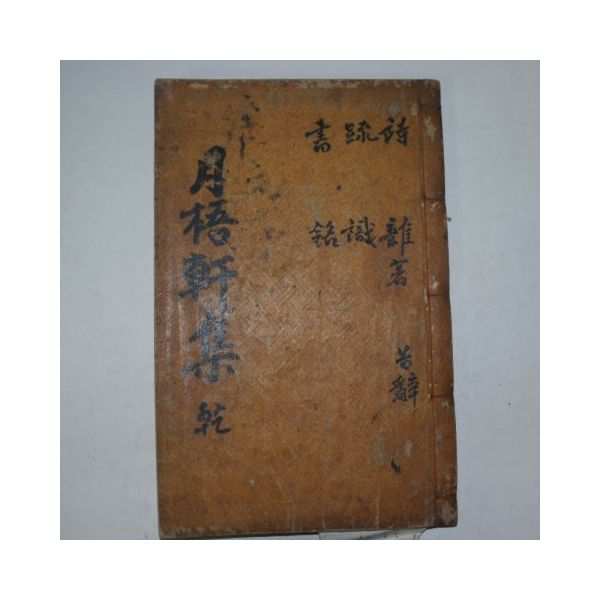 詩 疏 書
雜著 識 銘
昔辭
月梧軒集 乾